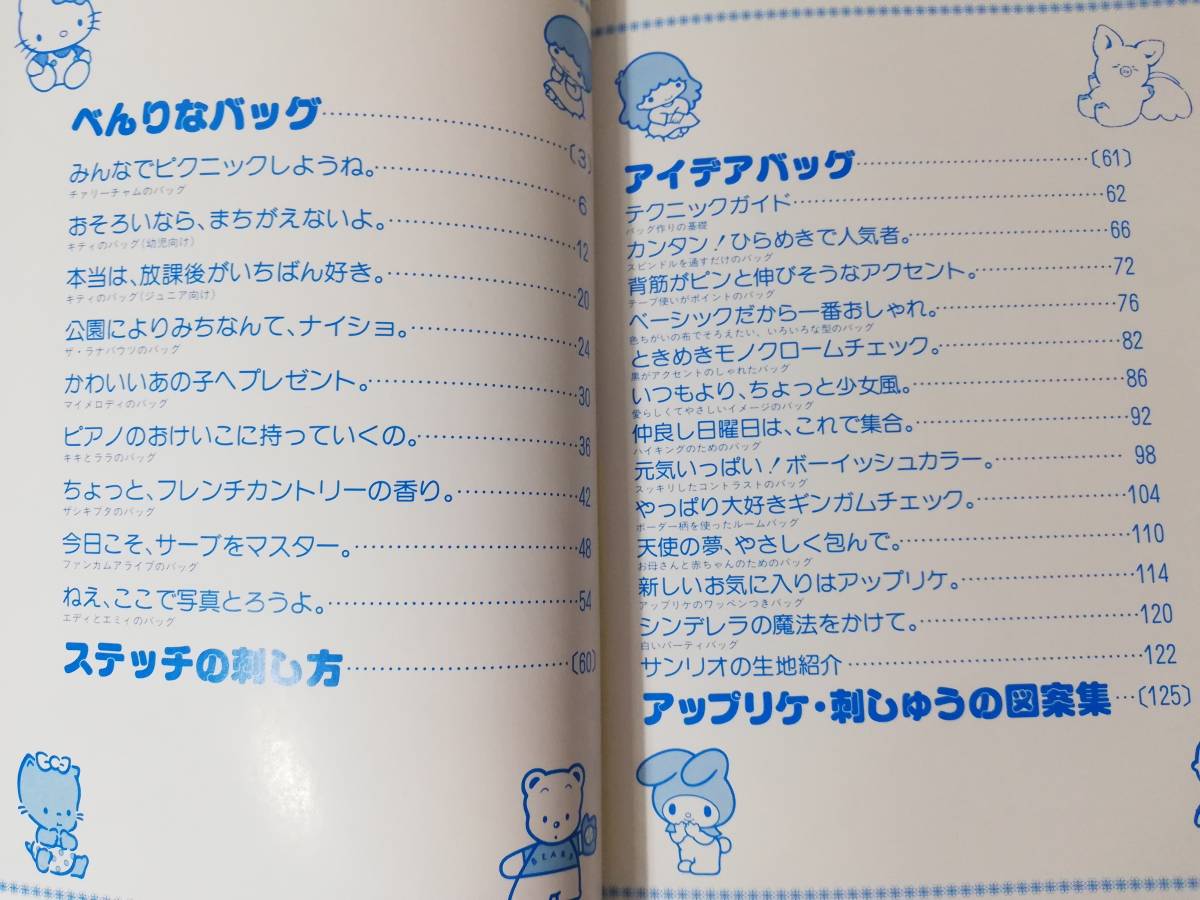 べんりなバッグ……(3)
みんなでピクニックしようね。……6
チァリーチャムのバッグ
おそろいなら、まちがえないよ。……12
キティのバッグ(幼児向け)
本当は、放課後がいちばん好き。……20
キティのバッグ(ジュニア向け)
公園によりみちなんて、ナイショ。……24
ザ・ラナバウツのバッグ
かわいいあの子へプレゼント。……30
マイメロディのバッグ
ピアノのおけいこに持っていくの。……36
キキとララのバッグ
ちょっと、フレンチカントリーの香り。……42
ザシキブタのバッグ
今日こそ、サーブをマスター。……48
ファンカムアライブのバッグ
ねえ、ここで写真とろうよ。……54
エディとエミィのバッグ
ステッチの刺し方……(60)
BEAR
アイデアバッグ……(61)
テクニックガイド……62
バッグ作りの基礎
カンタン!ひらめきで人気者。……66
スピンドルを通すだけのバッグ
背筋がピンと伸びそうなアクセント。……72
テープ使いがポイントのバッグ
ベーシックだから一番おしゃれ。……76
色ちがいの布でそろえたい、いろいろな型のバッグ
ときめきモノクロームチェック。……82
黒がアクセントのしゃれたバッグ
いつもより、ちょっと少女風。……86
愛らしくてやさしいイメージのバッグ
仲良し日曜日は、これで集合。……92
ハイキングのためのバッグ
元気いっぱい!ボーイッシュカラー。……98
スッキリしたコントラストのバッグ
やっぱり大好きギンガムチェック。……104
ボーダー柄を使ったルームバッグ
天使の夢、やさしく包んで。……110
お母さんと赤ちゃんのためのバッグ
新しいお気に入りはアップリケ。……114
アップリケのワッペンつきバッグ
シンデレラの魔法をかけて。……120
白いパーティバッグ
サンリオの生地紹介……122
アップリケ・刺しゅうの図案集…(125)